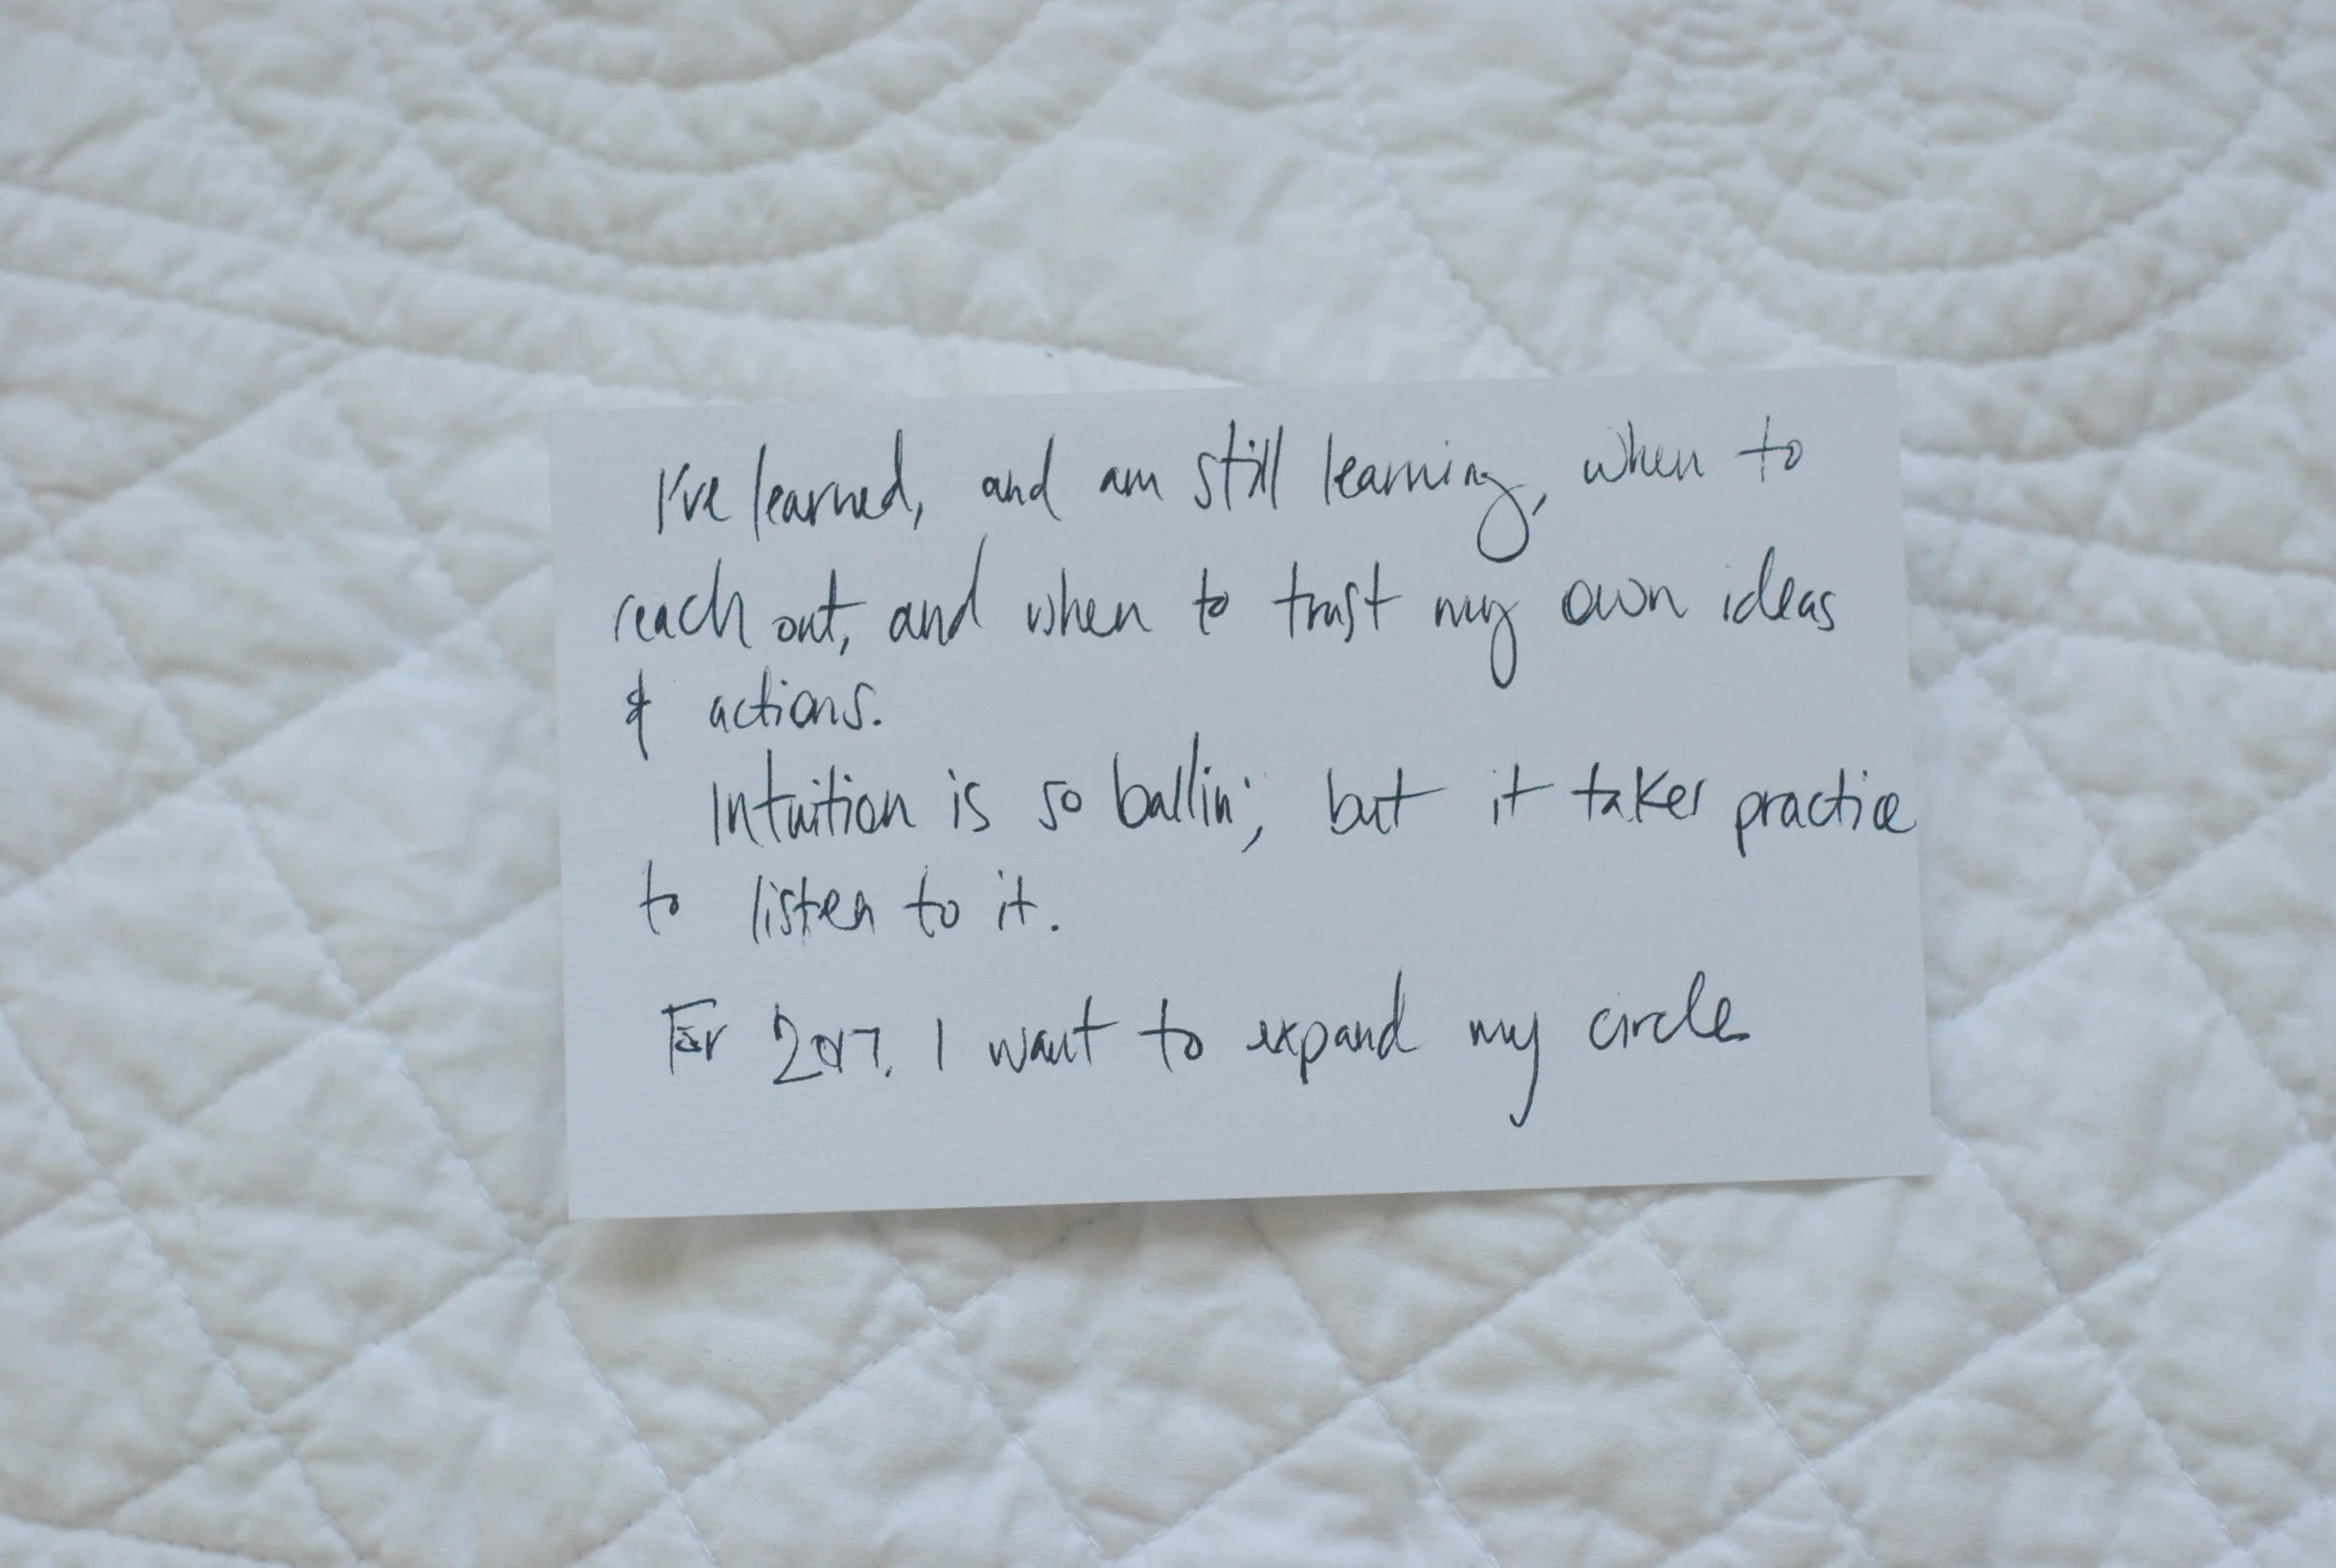 I've learned, and am still learning, when to
reach out, and when to trust my own ideas
& actions.
Intuition is so ballin', but it takes practice
to listen to it.
For 2017, I want to expand my circle